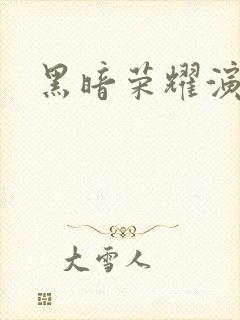 黑暗荣耀演
大雪人